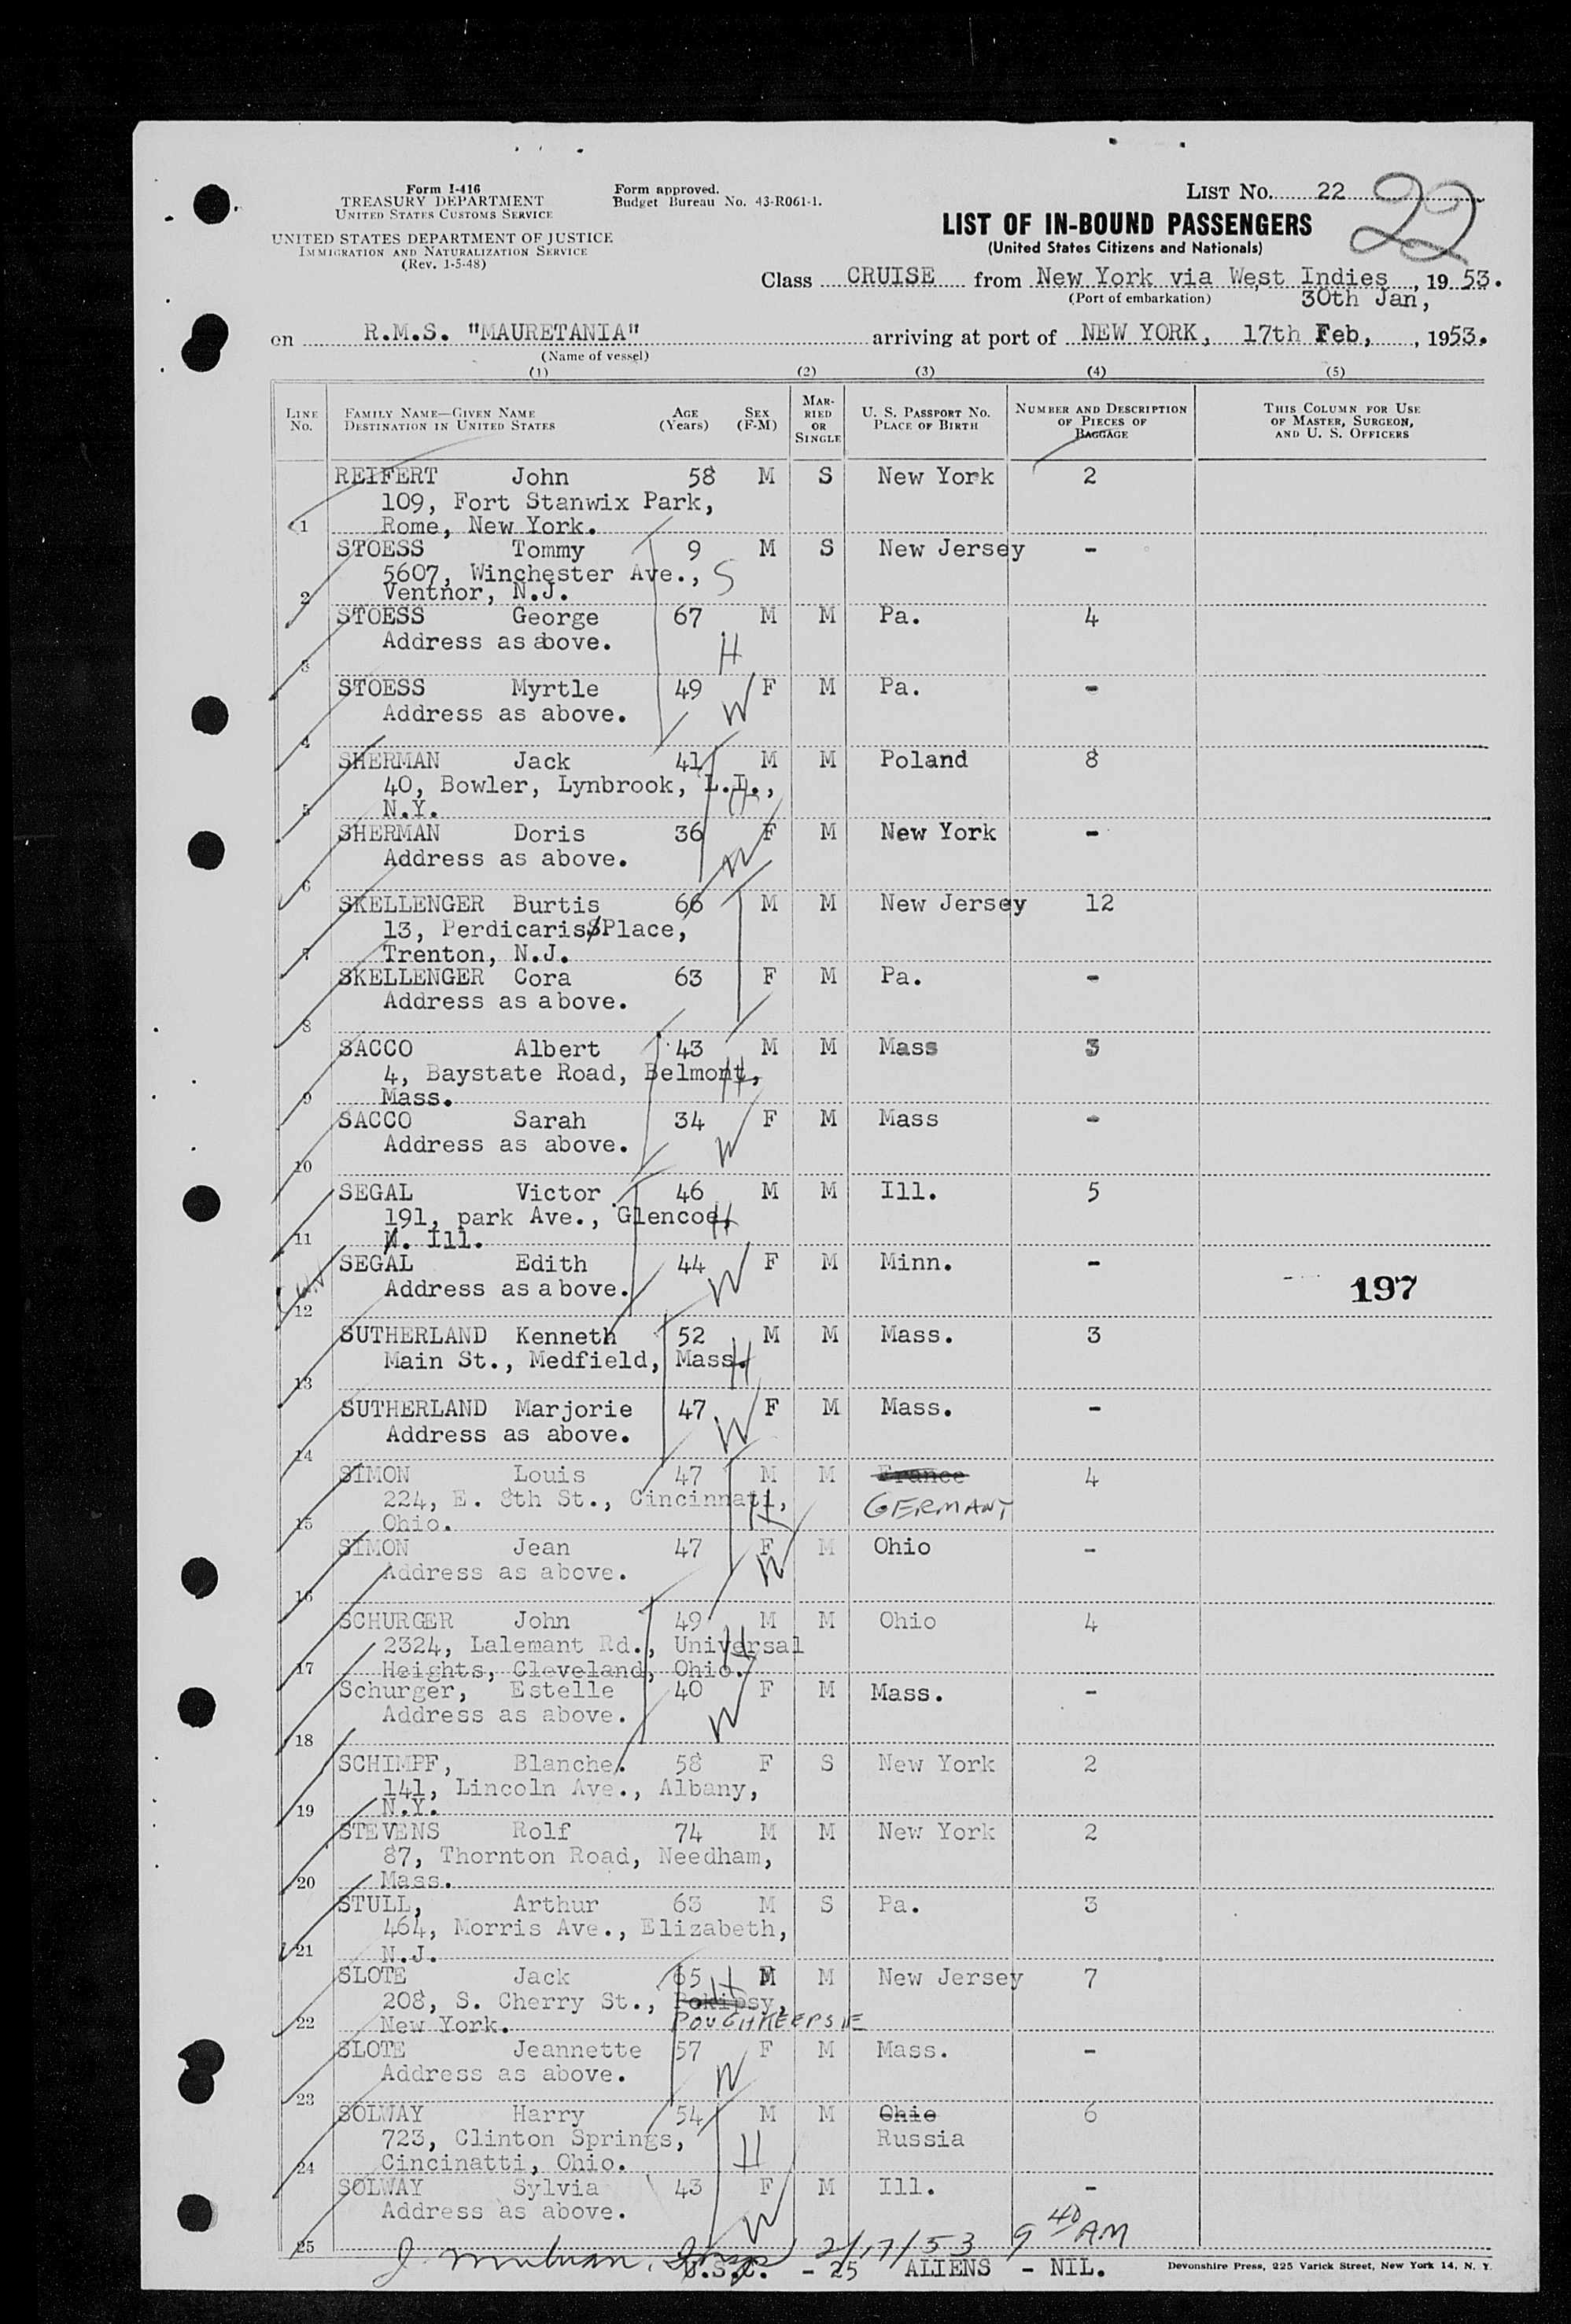 Form I-416
TREASURY DEPARTMENT
UNITED STATES CUSTOMS SERVICE
UNITED STATES DEPARTMENT OF JUSTICE
IMMIGRATION AND NATURALIZATION SERVICE
(Rev. 1-5-48)
Form approved.
Budget Bureau No. 43-R061-1.
LIST No. 22 22
LIST OF IN-BOUND PASSENGERS
(United States Citizens and Nationals)
Class CRUISE from New York via West Indies, 1953.
(Port of embarkation) 30th Jan,
on R.M.S. "MAURETANIA" arriving at port of NEW YORK, 17th Feb, , 1953.
(Name of vessel)
(1) (2) (3) (4) (5)
LINE No. FAMILY NAME—GIVEN NAME DESTINATION IN UNITED STATES AGE (Years) SEX (F-M) MARRIED OR SINGLE U. S. PASSPORT No. PLACE OF BIRTH NUMBER AND DESCRIPTION OF PIECES OF BAGGAGE THIS COLUMN FOR USE OF MASTER, SURGEON, AND U. S. OFFICERS
REIFERT John 58 M S New York 2
109, Fort Stanwix Park,
1 Rome, New York.
STOESS Tommy 9 M S New Jersey -
5607, Winchester Ave., S
2 Ventnor, N.J.
STOESS George 67 M M Pa. 4
Address as above. H
3
STOESS Myrtle 49 F M Pa. -
Address as above. W
4
SHERMAN Jack 41 M M Poland 8
40, Bowler, Lynbrook, L.I., H
5 N.Y.
SHERMAN Doris 36 F M New York -
Address as above. W
6
SKELLENGER Burtis 66 M M New Jersey 12
13, Perdicaris Place,
7 Trenton, N.J.
SKELLENGER Cora 63 F M Pa. -
Address as above.
8
SACCO Albert 43 M M Mass 3
4, Baystate Road, Belmont, H
9 Mass.
SACCO Sarah 34 F M Mass -
Address as above. W
10
SEGAL Victor 46 M M Ill. 5
191, park Ave., Glencoe, H
11 N. Ill.
SEGAL Edith 44 F M Minn. -
Address as above. W 197
12
SUTHERLAND Kenneth 52 M M Mass. 3
Main St., Medfield, Mass. H
13
SUTHERLAND Marjorie 47 F M Mass. -
Address as above. W
14
SIMON Louis 47 M M France 4
224, E. 8th St., Cincinnati, H GERMANY
15 Ohio.
SIMON Jean 47 F M Ohio -
Address as above. W
16
SCHURGER John 49 M M Ohio 4
2324, Lalemant Rd., Universal H
17 Heights, Cleveland, Ohio.
Schurger, Estelle 40 F M Mass. -
Address as above. W
18
SCHIMPF, Blanche. 58 F S New York 2
141, Lincoln Ave., Albany,
19 N.Y.
STEVENS Rolf 74 M M New York 2
87, Thornton Road, Needham,
20 Mass.
STULL, Arthur 63 M S Pa. 3
464, Morris Ave., Elizabeth,
21 N.J.
SLOTE Jack 65 H M M New Jersey 7
208, S. Cherry St., Pokipsy,
22 New York. POUGHKEEPSIE
SLOTE Jeannette 57 F M Mass. -
Address as above. W
23
SOLWAY Harry 54 M M Ohio 6
723, Clinton Springs, H Russia
24 Cincinatti, Ohio.
SOLWAY Sylvia 43 F M Ill. -
Address as above. W
25 2/17/53 9 40 AM
U.S.C. - 25 ALIENS - NIL.
Devonshire Press, 225 Varick Street, New York 14, N. Y.